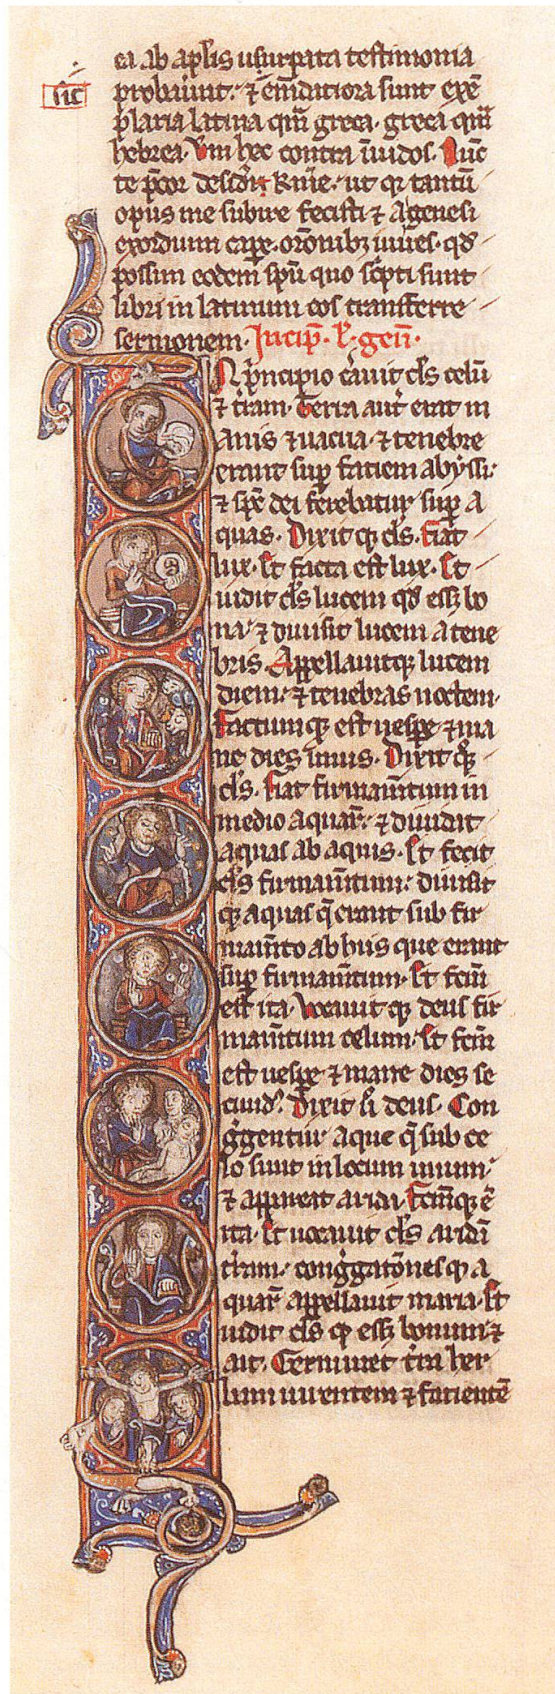 ea ab apl̅is usurpata testimonia
sic
probau̅nt. ⁊ em̅datiora sunt exe̅
plaria latina qm̅ greca. greca qm̅
hebrea. Vm hec contra i̅uidos. Nu̅c
te p̅cor desid̅i k̅me. ut q̅ tantu̅
opus me subire fecisti ⁊ a genesi
exordium cape. or̅onib; iuues. qd̅
possim eodem sp̅u quo sc̅pti sunt
libri in latinum eos transferre
sermonem. Incip̅. l̅. gen̅.
IN p̅ncipio c̅auit d̅s celu̅
⁊ t̅ram. Terra aut̅ erat in
anis ⁊ uacua. ⁊ tenebre
erant sup̅ faciem abyssi.
⁊ sp̅c dei ferebatur sup̅ a
quas. Dixit q; d̅s. Fiat
lux. Et facta est lux. Et
uidit d̅s lucem qd̅ ess; bo
na. ⁊ diuisit lucem a tene
bris. Appellauitq; lucem
diem. ⁊ tenebras noctem.
Factumq; est uesp̅e ⁊ ma
ne dies unus. Dixit q;
d̅s. Fiat firmam̅tum in
medio aquar̅. ⁊ diuidat
aquas ab aquis. Et fecit
d̅s firmam̅tum. diuisit
q; aquas q̅ erant sub fir
mam̅to ab hiis que erant
sup̅ firmam̅tum. Et fc̅m
est ita. Vocauit q; deus fir
mam̅tum celum. Et fc̅m
est uesp̅e ⁊ mane dies se
cund᾽. Dixit u̅ deus. Con
g̅gentur aque q̅ sub ce
lo sunt in locum unum.
⁊ appareat arida. Fc̅mq; e̅
ita. Et uocauit d̅s arida̅
t̅ram. cong̅gat̅onesq; a
quar̅ appellauit maria. Et
uidit d̅s q̅ ess; bonum ⁊
ait. Germinet t̅ra her
bam uirentem ⁊ faciente̅